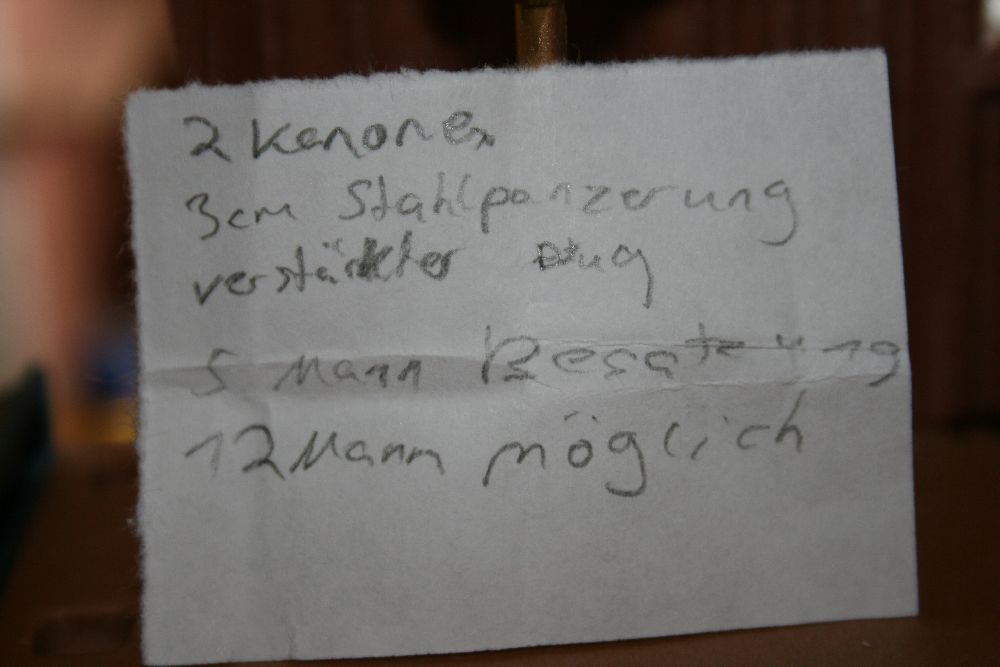 2 Kanonen
3cm Stahlpanzerung
verstärkter Bug
5 Mann Besatzung
12 Mann möglich